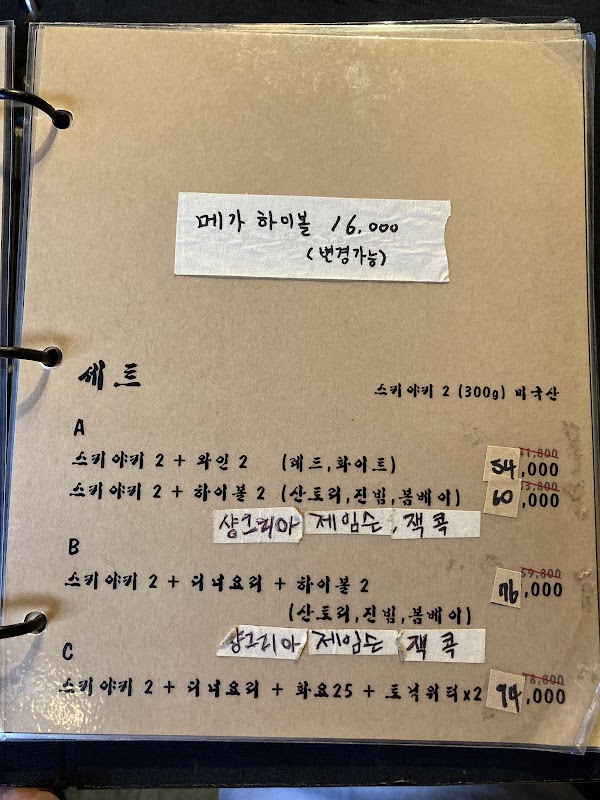 메가 하이볼 16.000
(변경가능)
세트
스키야키 2 (300g) 미국산
A
스키야키 2 + 와인 2 (레드,화이트) 54,000
스키야키 2 + 하이볼 2 (산토리,진빔,봄베이) 60,000
샹그리아 제임슨, 잭 콕
B
59,800
스키야키 2 + 디너요리 + 하이볼 2 76,000
(산토리,진빔,봄베이)
샹그리아 제임슨 잭 콕
C
78,800
스키야키 2 + 디너요리 + 화요25 + 토닉워터x2 94,000